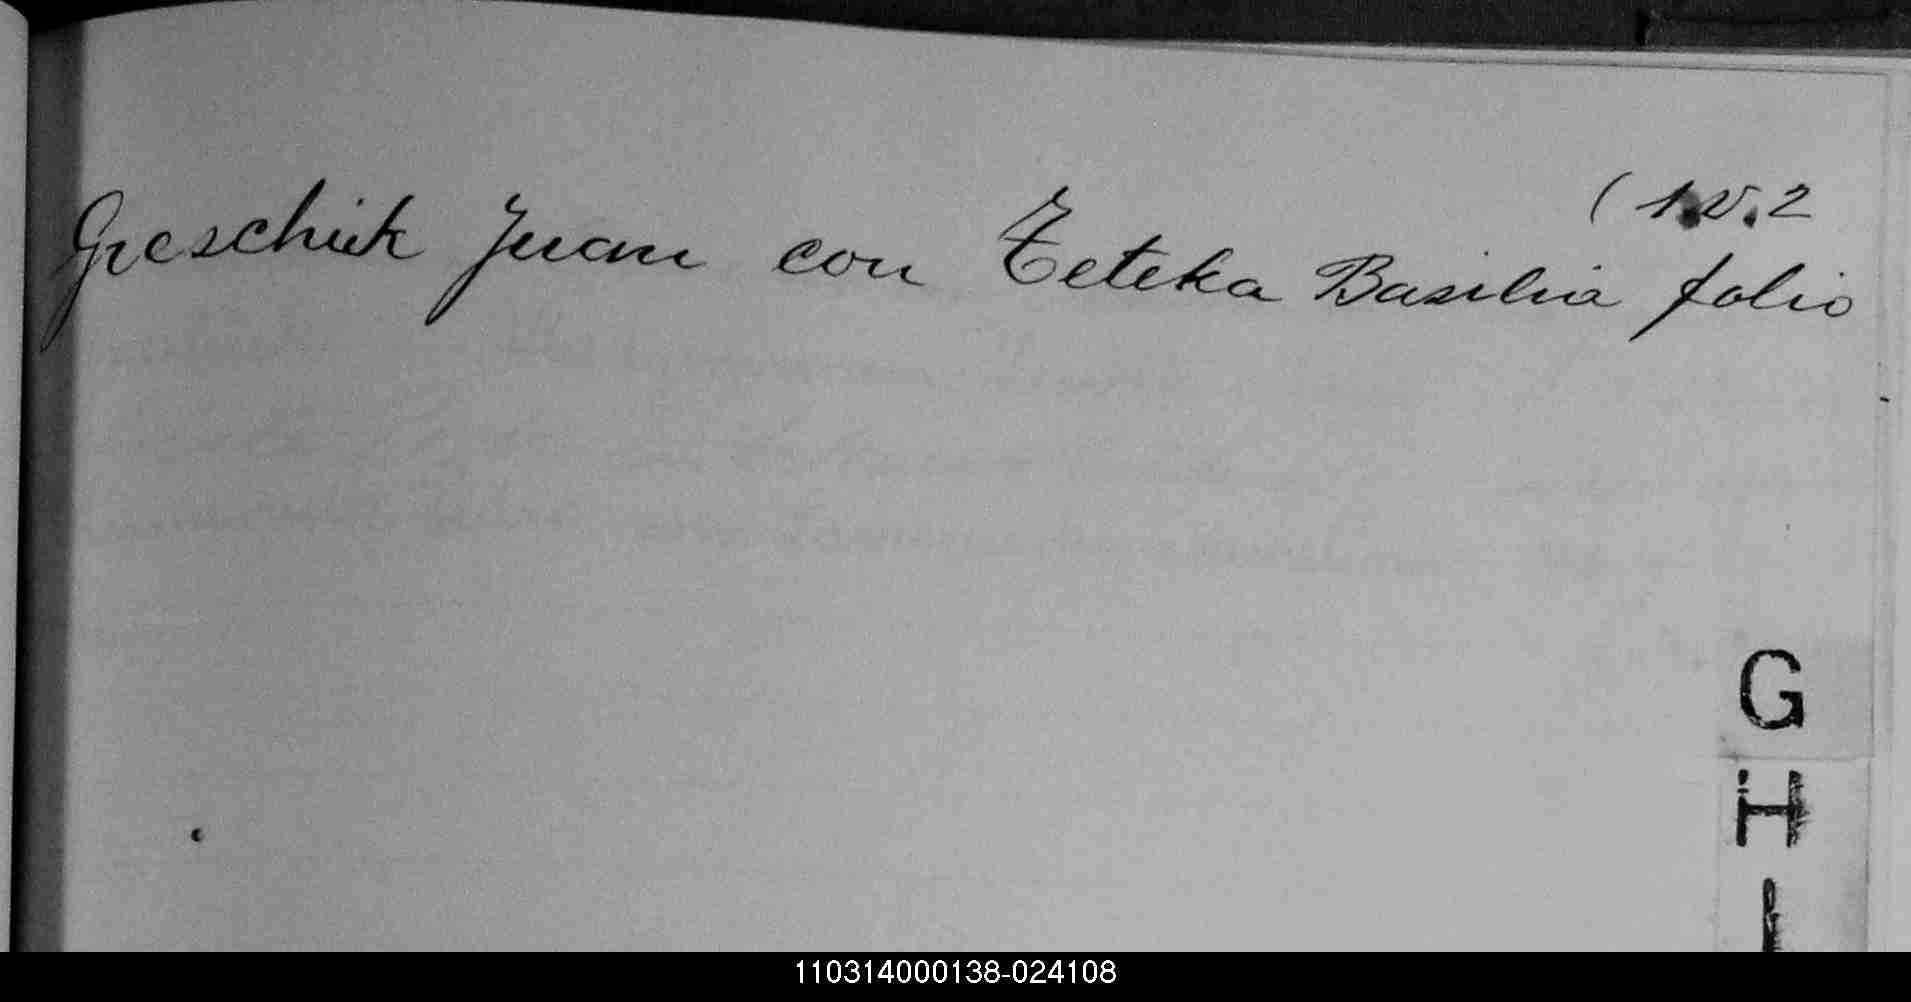 (1.v.2
Greschuk Juan con Teteka Basilia folio
G
H
I
110314000138-024108